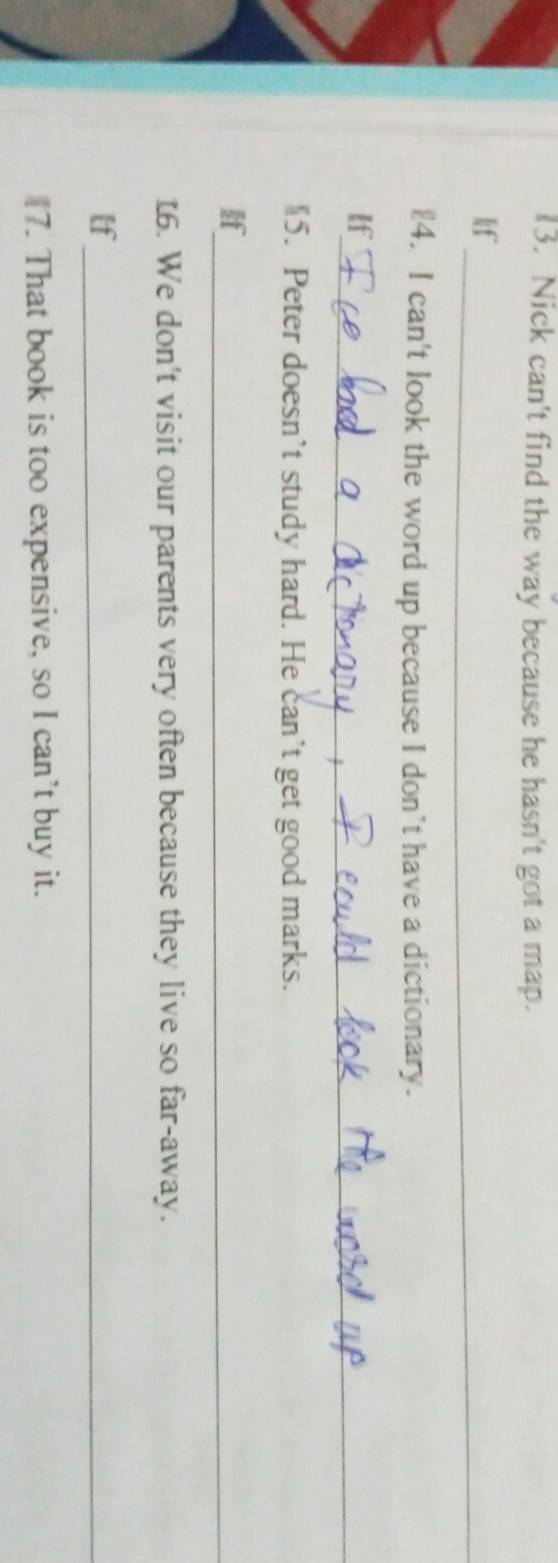 13. Nick can't find the way because he hasn't got a map.
If
14. I can't look the word up because I don't have a dictionary.
If I had a dictionary, I could look the word up
15. Peter doesn't study hard. He can't get good marks.
If
16. We don't visit our parents very often because they live so far-away.
If
17. That book is too expensive, so I can't buy it.